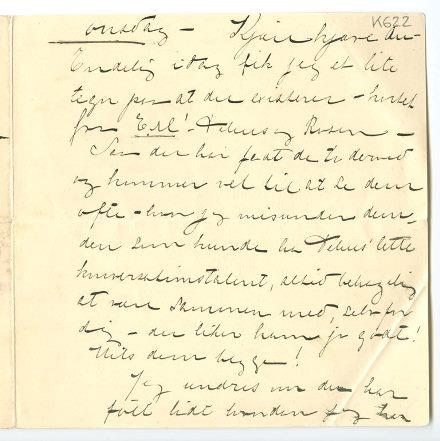 K622
onsdag — Kjære kjære du —
Endelig idag fik jeg et lite
tegn paa at du existerer — hvorfor
for E.M! — Delius og Rosen —
Saa du har faat de to derned
og kommer vel til at se dem
ofte — hvor jeg misunder dem —
den som kunde ha Delius' lette
konversationstalent, altid behagelig
at være sammen med, selv for
dig — du lider ham jo godt!
Hils dem begge!
Jeg undres om du har
faat lidt